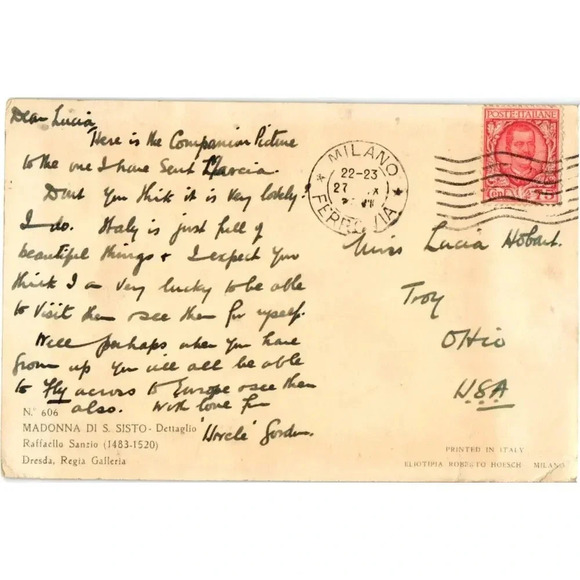 Dear Lucia
Here is the Companion Picture
to the one I have Sent Marcia.
Dont you think it is Very lovely?
I do. Italy is just full of
beautiful things & I expect you
think I am Very lucky to be able
to Visit them & see them for myself.
Well perhaps when you have
grown up you will all be able
to fly across to Europe & see them
also. With love from
'Uncle' Gordon.
N.° 606
MADONNA DI S. SISTO - Dettaglio
Raffaello Sanzio (1483-1520)
Dresda, Regia Galleria
MILANO
22-23
27
FERROVIA
POSTE·ITALIANE
75
Miss Lucia Hobart.
Troy
OHio
USA
PRINTED IN ITALY
ELIOTIPIA ROBERTO HOESCH MILANO